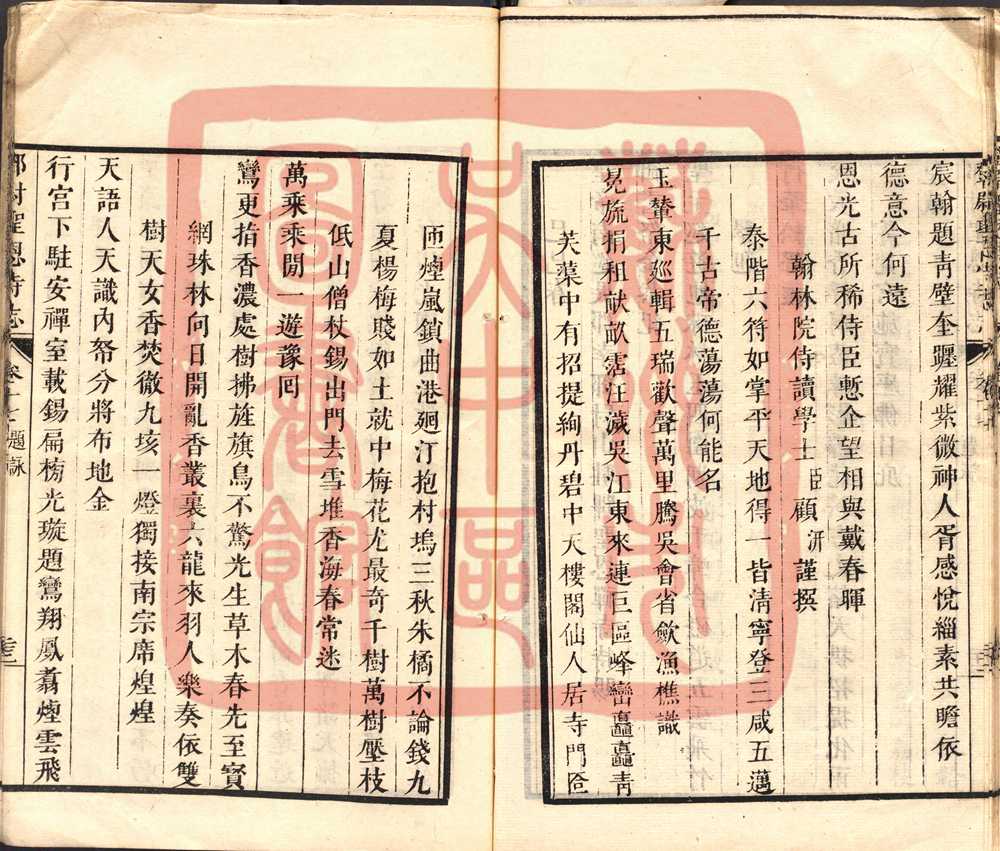 宸翰題青壁奎躔耀紫微神人胥感悅緇素共瞻依
德意今何遠
恩光古所稀侍臣慙企望相與戴春暉
翰林院侍讀學士臣顧汧謹撰
泰階六符如掌平天地得一皆清寧登三咸五邁
千古帝德蕩蕩何能名
玉輦東廵輯五瑞歡聲萬里騰吳會省斂漁樵識
冕旒捐租献畝霑汪濊吳江東來連巨區峰巒矗矗靑
芙蕖中有招提絢丹碧中天樓閣仙人居寺門
匝煙嵐鎖曲港廻汀抱村塢三秋朱橘不論錢九
夏楊梅賤如土就中梅花尤最奇千樹萬樹壓枝
低山僧杖錫出門去雪堆香海春常迷
萬乘乘閒一遊豫囘
鸞更指香濃處樹拂旌旗鳥不驚光生草木春先至寳
網珠林向日開亂香叢裏六龍來羽人樂奏依雙
樹天女香焚徹九垓一燈獨接南宗席煌煌
天語人天識內帑分將布地金
行宮下駐安禪室載錫扁榜光璇題鸞翔鳳翥煙雲飛
聖恩寺志 卷十七 題詠